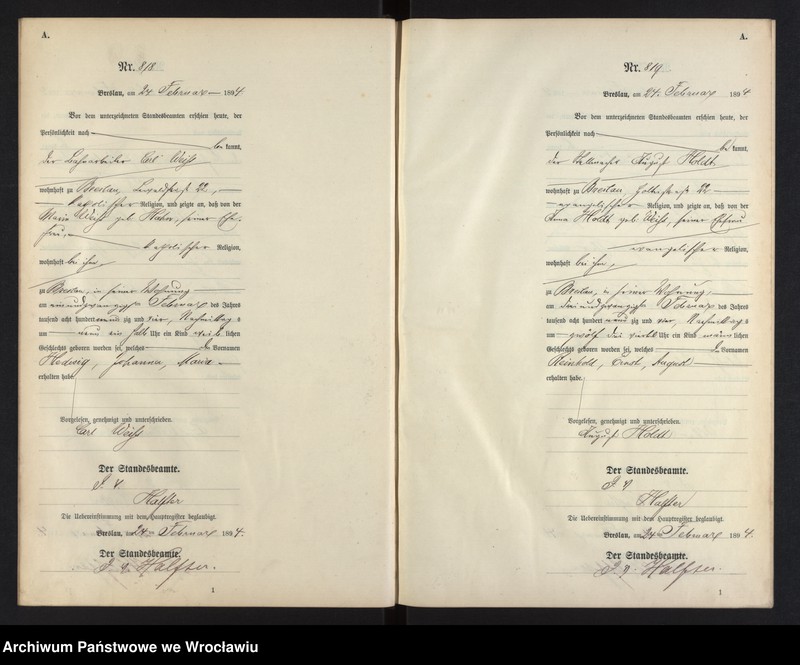 A.
Nr. 818
Breslau, am 24 Februar 1894
Vor dem unterzeichneten Standesbeamten erschien heute, der
Persönlichkeit nach
bekannt,
der Carl Weiß
wohnhaft zu Breslau, 22,
katholischer Religion, und zeigte an, daß von der
Maria Weiß geb. seiner Ehe-
frau,
katholischer Religion,
wohnhaft bei ihm,
zu Breslau, in seiner Wohnung
am einundzwanzigsten Februar des Jahres
tausend acht hundert neunzig und vier, Nachmittags
um neun ein halb Uhr ein Kind weiblichen
Geschlechts geboren worden sei, welches die Vornamen
Hedwig, Johanna, Maria
erhalten habe.
Vorgelesen, genehmigt und unterschrieben.
Carl Weiß
Der Standesbeamte.
J. V.
Halfter
Die Uebereinstimmung mit dem Hauptregister beglaubigt.
Breslau, am 24 Februar 1894.
Der Standesbeamte.
J. V. Halfter.
1
A.
Nr. 819
Breslau, am 24. Februar 1894
Vor dem unterzeichneten Standesbeamten erschien heute, der
Persönlichkeit nach
bekannt,
der August Holdt
wohnhaft zu Breslau 22
evangelischer Religion, und zeigte an, daß von der
Anna Holdt geb. Weiß, seiner Ehefrau
evangelischer Religion,
wohnhaft bei ihm,
zu Breslau, in seiner Wohnung,
am dreiundzwanzigsten Februar des Jahres
tausend acht hundert neunzig und vier, Nachmittags
um zwölf drei viertel Uhr ein Kind männlichen
Geschlechts geboren worden sei, welches die Vornamen
Reinhold, Ernst, August
erhalten habe.
Vorgelesen, genehmigt und unterschrieben.
August Holdt
Der Standesbeamte.
J. V.
Halfter
Die Uebereinstimmung mit dem Hauptregister beglaubigt.
Breslau, am 24 Februar 1894.
Der Standesbeamte.
J. V. Halfter.
1
Archiwum Państwowe we Wrocławiu